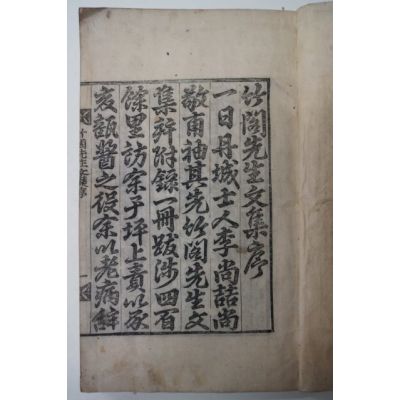 竹閣先生文集序
一日丹城士人李尚喆尚
敬甫袖其先竹閣先生文
集幷附錄一冊跋涉四百
餘里訪余于坪上責以
瓿醬之役余以老病辭
竹閣先生文集序 一